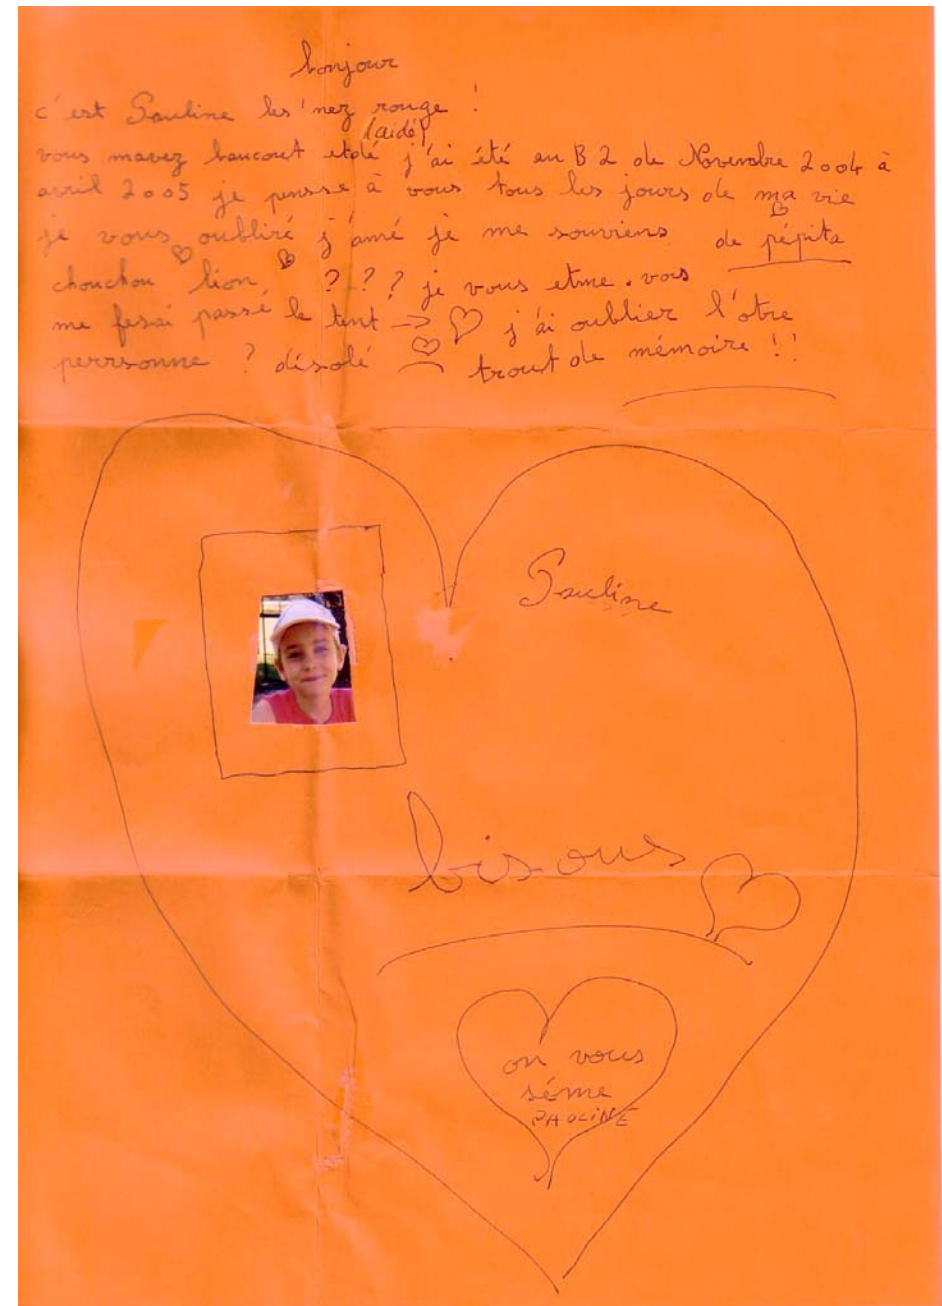 bonjour
c'est Pauline les nez rouge !
(aidé)
vous mavez baucout etdé j'ai été au B2 de Novembre 2004 à
avril 2005 je pensse à vous tous les jours de ma vie
je vous oubliré j'amé je me souviens de pépita
chouchou lion ??? je vous etme. vous
me fesai passé le tent → j'ai oublier l'otre
perrsonne ? désolé trout de mémoire !!
Pauline
bisous
on vous
séme
PAULINE